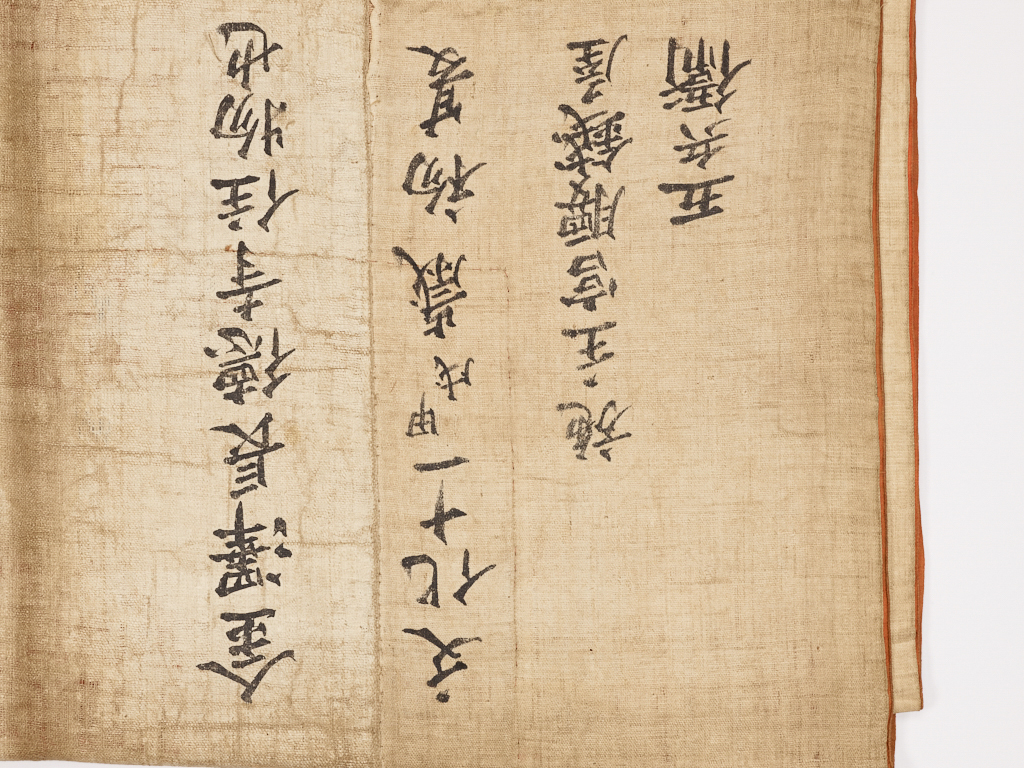 金澤長徳寺住物也
文化十一甲戌歳初夏
施主宮腰錢屋
五兵衛